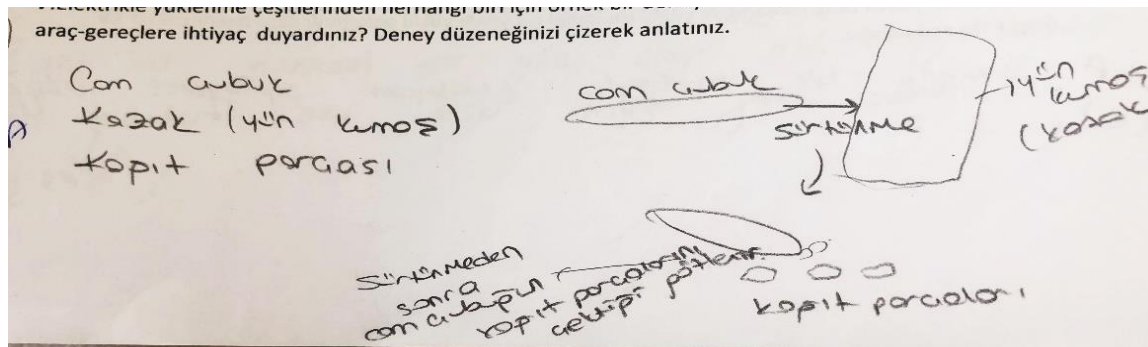 araç-gereçlere ihtiyaç duyardınız? Deney düzeneğinizi çizerek anlatınız.
Cam çubuk
Kazak (yün kumaş)
Kağıt parçası
cam çubuk
sürtünme
yün
kumaş
(kazak
Sürtünmeden
sonra
cam çubuğun
kağıt parçalarını
çektiği gözlenir.
kağıt parçaları